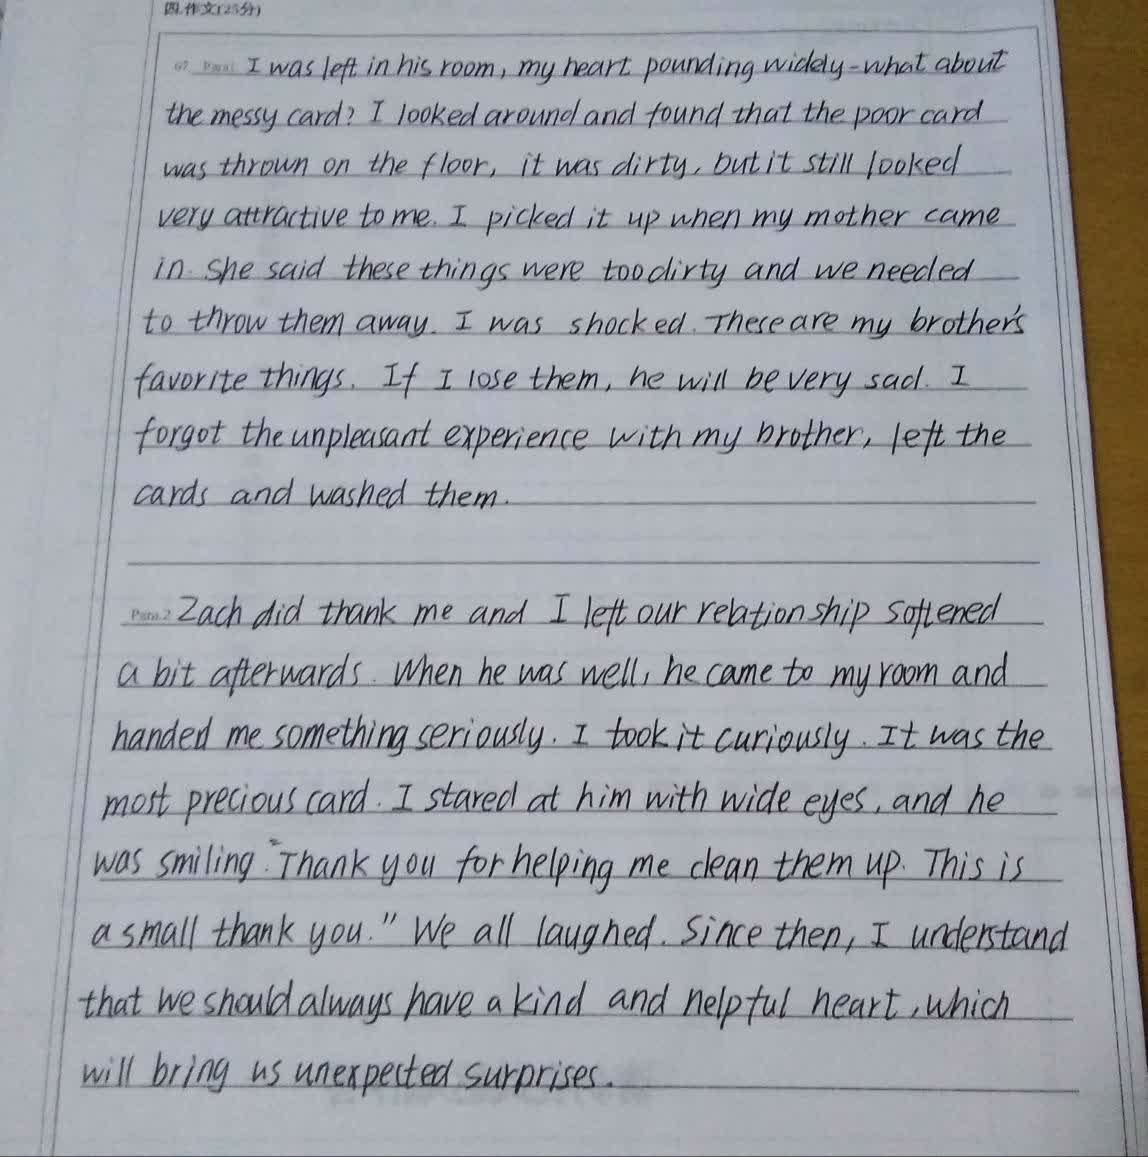 四.作文(25分)
67 Para1 I was left in his room, my heart pounding widely-what about
the messy card? I looked around and found that the poor card
was thrown on the floor, it was dirty, but it still looked
very attractive to me. I picked it up when my mother came
in. She said these things were too dirty and we needed
to throw them away. I was shocked. These are my brother's
favorite things. If I lose them, he will be very sad. I
forgot the unpleasant experience with my brother, left the
cards and washed them.
Para.2 Zach did thank me and I left our relationship softened
a bit afterwards. When he was well, he came to my room and
handed me something seriously. I took it curiously. It was the
most precious card. I stared at him with wide eyes, and he
was smiling. "Thank you for helping me clean them up. This is
a small thank you." We all laughed. Since then, I understand
that we should always have a kind and helpful heart, which
will bring us unexpected surprises.